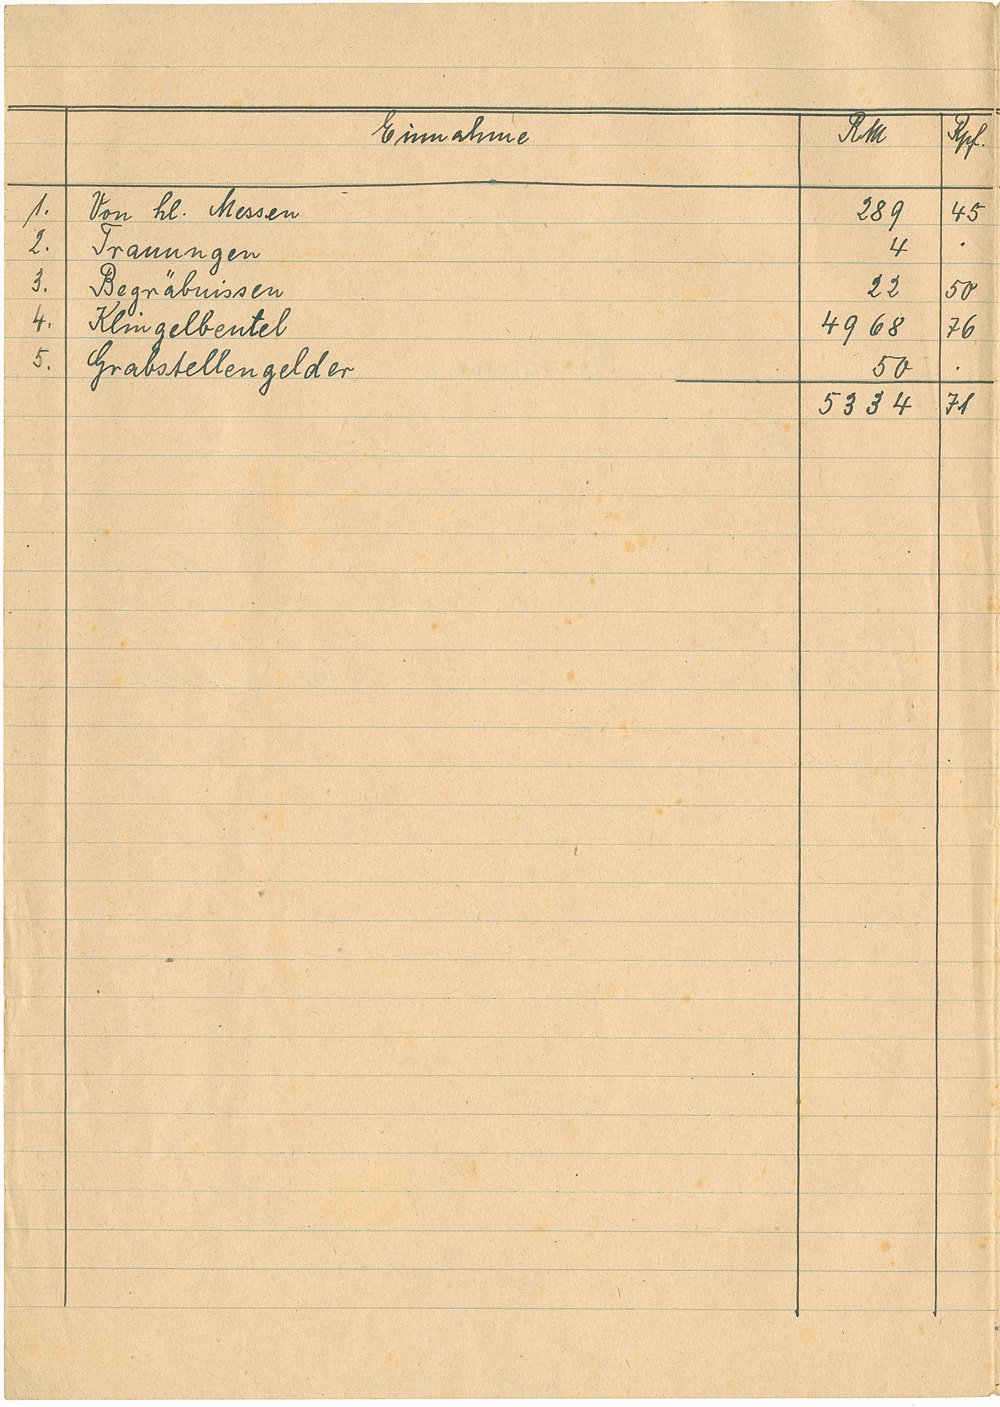 Einnahme RM Rpf.
1. Von hl. Messen 289 45
2. Trauungen 4 .
3. Begräbnissen 22 50
4. Klingelbeutel 4968 76
5. Grabstellengelder 50 .
5334 71